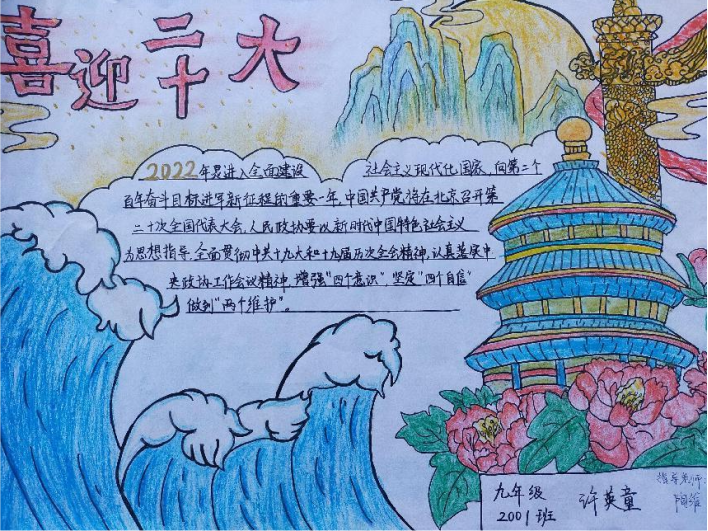 喜迎二十大
2022年是进入全面建设 社会主义现代化国家、向第二个
百年奋斗目标进军新征程的重要一年,中国共产党将在北京召开第
二十次全国代表大会,人民政协要以新时代中国特色社会主义
为思想指导,全面贯彻中共十九大和十九届历次全会精神,认真落实中
央政协工作会议精神,增强"四个意识"、坚定"四个自信"
做到"两个维护"。
九年级 许英童
2001班
指导老师: